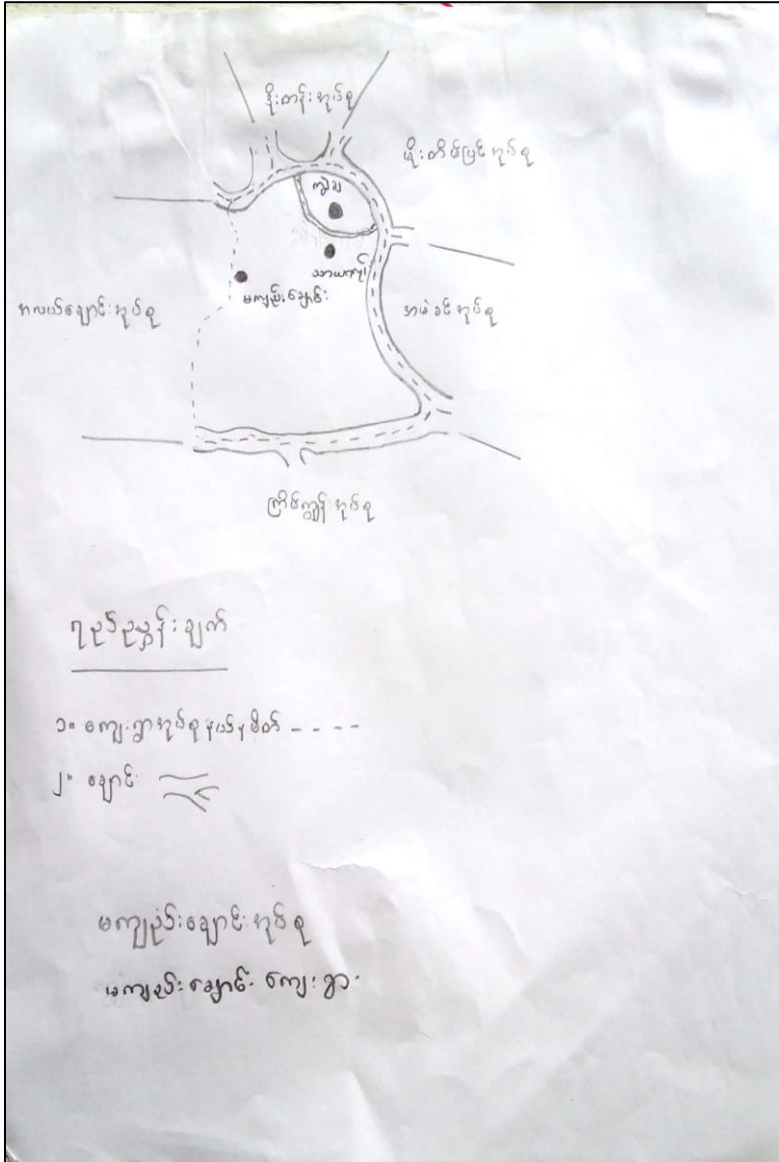 နိုးတန်းအုပ်စု
ဖိုးတိမ်ပြင်အုပ်စု
ကျွဲခြံ
သာယာကုန်း
မကျည်းချောင်း
အလယ်ချောင်းအုပ်စု
အမဲခင်အုပ်စု
ကြိမ်ကျွန်းအုပ်စု
ရည်ညွှန်းချက်
၁။ ကျေးရွာအုပ်စုနယ်နမိတ်
၂။ ချောင်း
မကျည်းချောင်းအုပ်စု
မကျည်းချောင်းကျေးရွာ